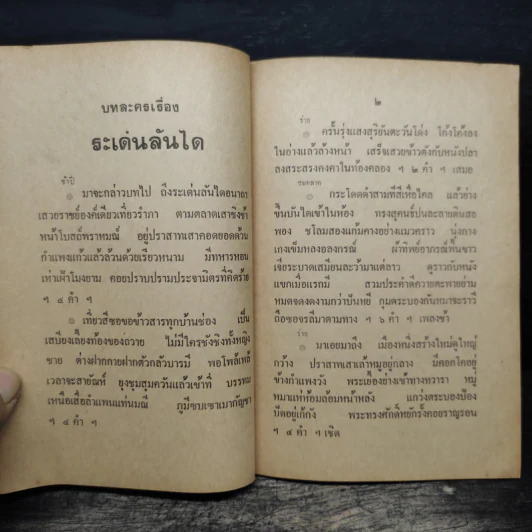 บทละครเรื่อง
ระเด่นลันได
ช้าปี่
๏ มาจะกล่าวบทไป ถึงระเด่นลันไดอนาถา
เสวยราชย์องค์เดียวเที่ยวรำภา ตามตลาดเสาชิงช้า
หน้าโบสถ์พราหมณ์ อยู่ปราสาทเสาคอดยอดด้วน
กำแพงแก้วแล้วล้วนด้วยเรียวหนาม มีทหารหอน
เห่าเฝ้าโมงยาม คอยปราบปรามประจามิตรที่คิดร้าย
ฯ ๔ คำ ฯ
๏ เที่ยวสีซอขอข้าวสารทุกบ้านช่อง เป็น
เสบียงเลี้ยงท้องของถวาย ไม่มีใครชังชิงทั้งหญิง
ชาย ต่างฝากกายฝากตัวกลัวบารมี พอโพล้เพล้
เวลาจะสายัณห์ ยุงชุมสุมควันแล้วเข้าที่ บรรทม
เหนือเสื่อลำแพนแท่นมณี ภูมีซบเซาเมากัญชา
ฯ ๔ คำ ฯ
๒
ร่าย
๏ ครั้นรุ่งแสงสุริยันตะวันโด่ง โก้งโค้งลง
ในอ่างแล้วล้างหน้า เสร็จเสวยข้าวตังกับหนังปลา
ลงสระสรงคงคาในท้องคลอง ฯ ๒ คำ ฯ เสมอ
ชมตลาด
๏ กระโดดดำสามทีสีเหื่อไคล แล้วย่าง
ขึ้นบันไดเข้าในห้อง ทรงสุคนธ์ปนละลายดินสอ
พอง ชโลมสองแก้มคางอย่างแมวคราว นุ่งกาง
เกงเข็มหลงอลงกรณ์ ผ้าทิพย์อาภรณ์พื้นขาว
เจียระบาดเสมียนละว้ามาแต่ลาว ดูราวกับหนัง
แขกเมื่อแรกมี สวมประคำดีควายตะพายย่าม
หมดจดงดงามกว่าปันหยี กุมตระบองกันหมาจะราวี
ถือซอจรลีมาตามทาง ฯ ๖ คำ ฯ เพลงช้า
๏ มาเอยมาถึง เมืองหนึ่งสร้างใหม่ดูใหญ่
กว้าง ปราสาทเสาเล้าหมูอยู่กลาง มีคอกโคอยู่
ข้างกำแพงวัง พระเยื้องย่างเข้าทางทวารา หมู่
หมาแห่ห้อมล้อมหน้าหลัง แกว่งตระบองป้อง
ปัดอยู่เก้กัง พระทรงศักดิ์หยักรั้งคอยราญรอน
ฯ ๔ คำ ฯ เชิด